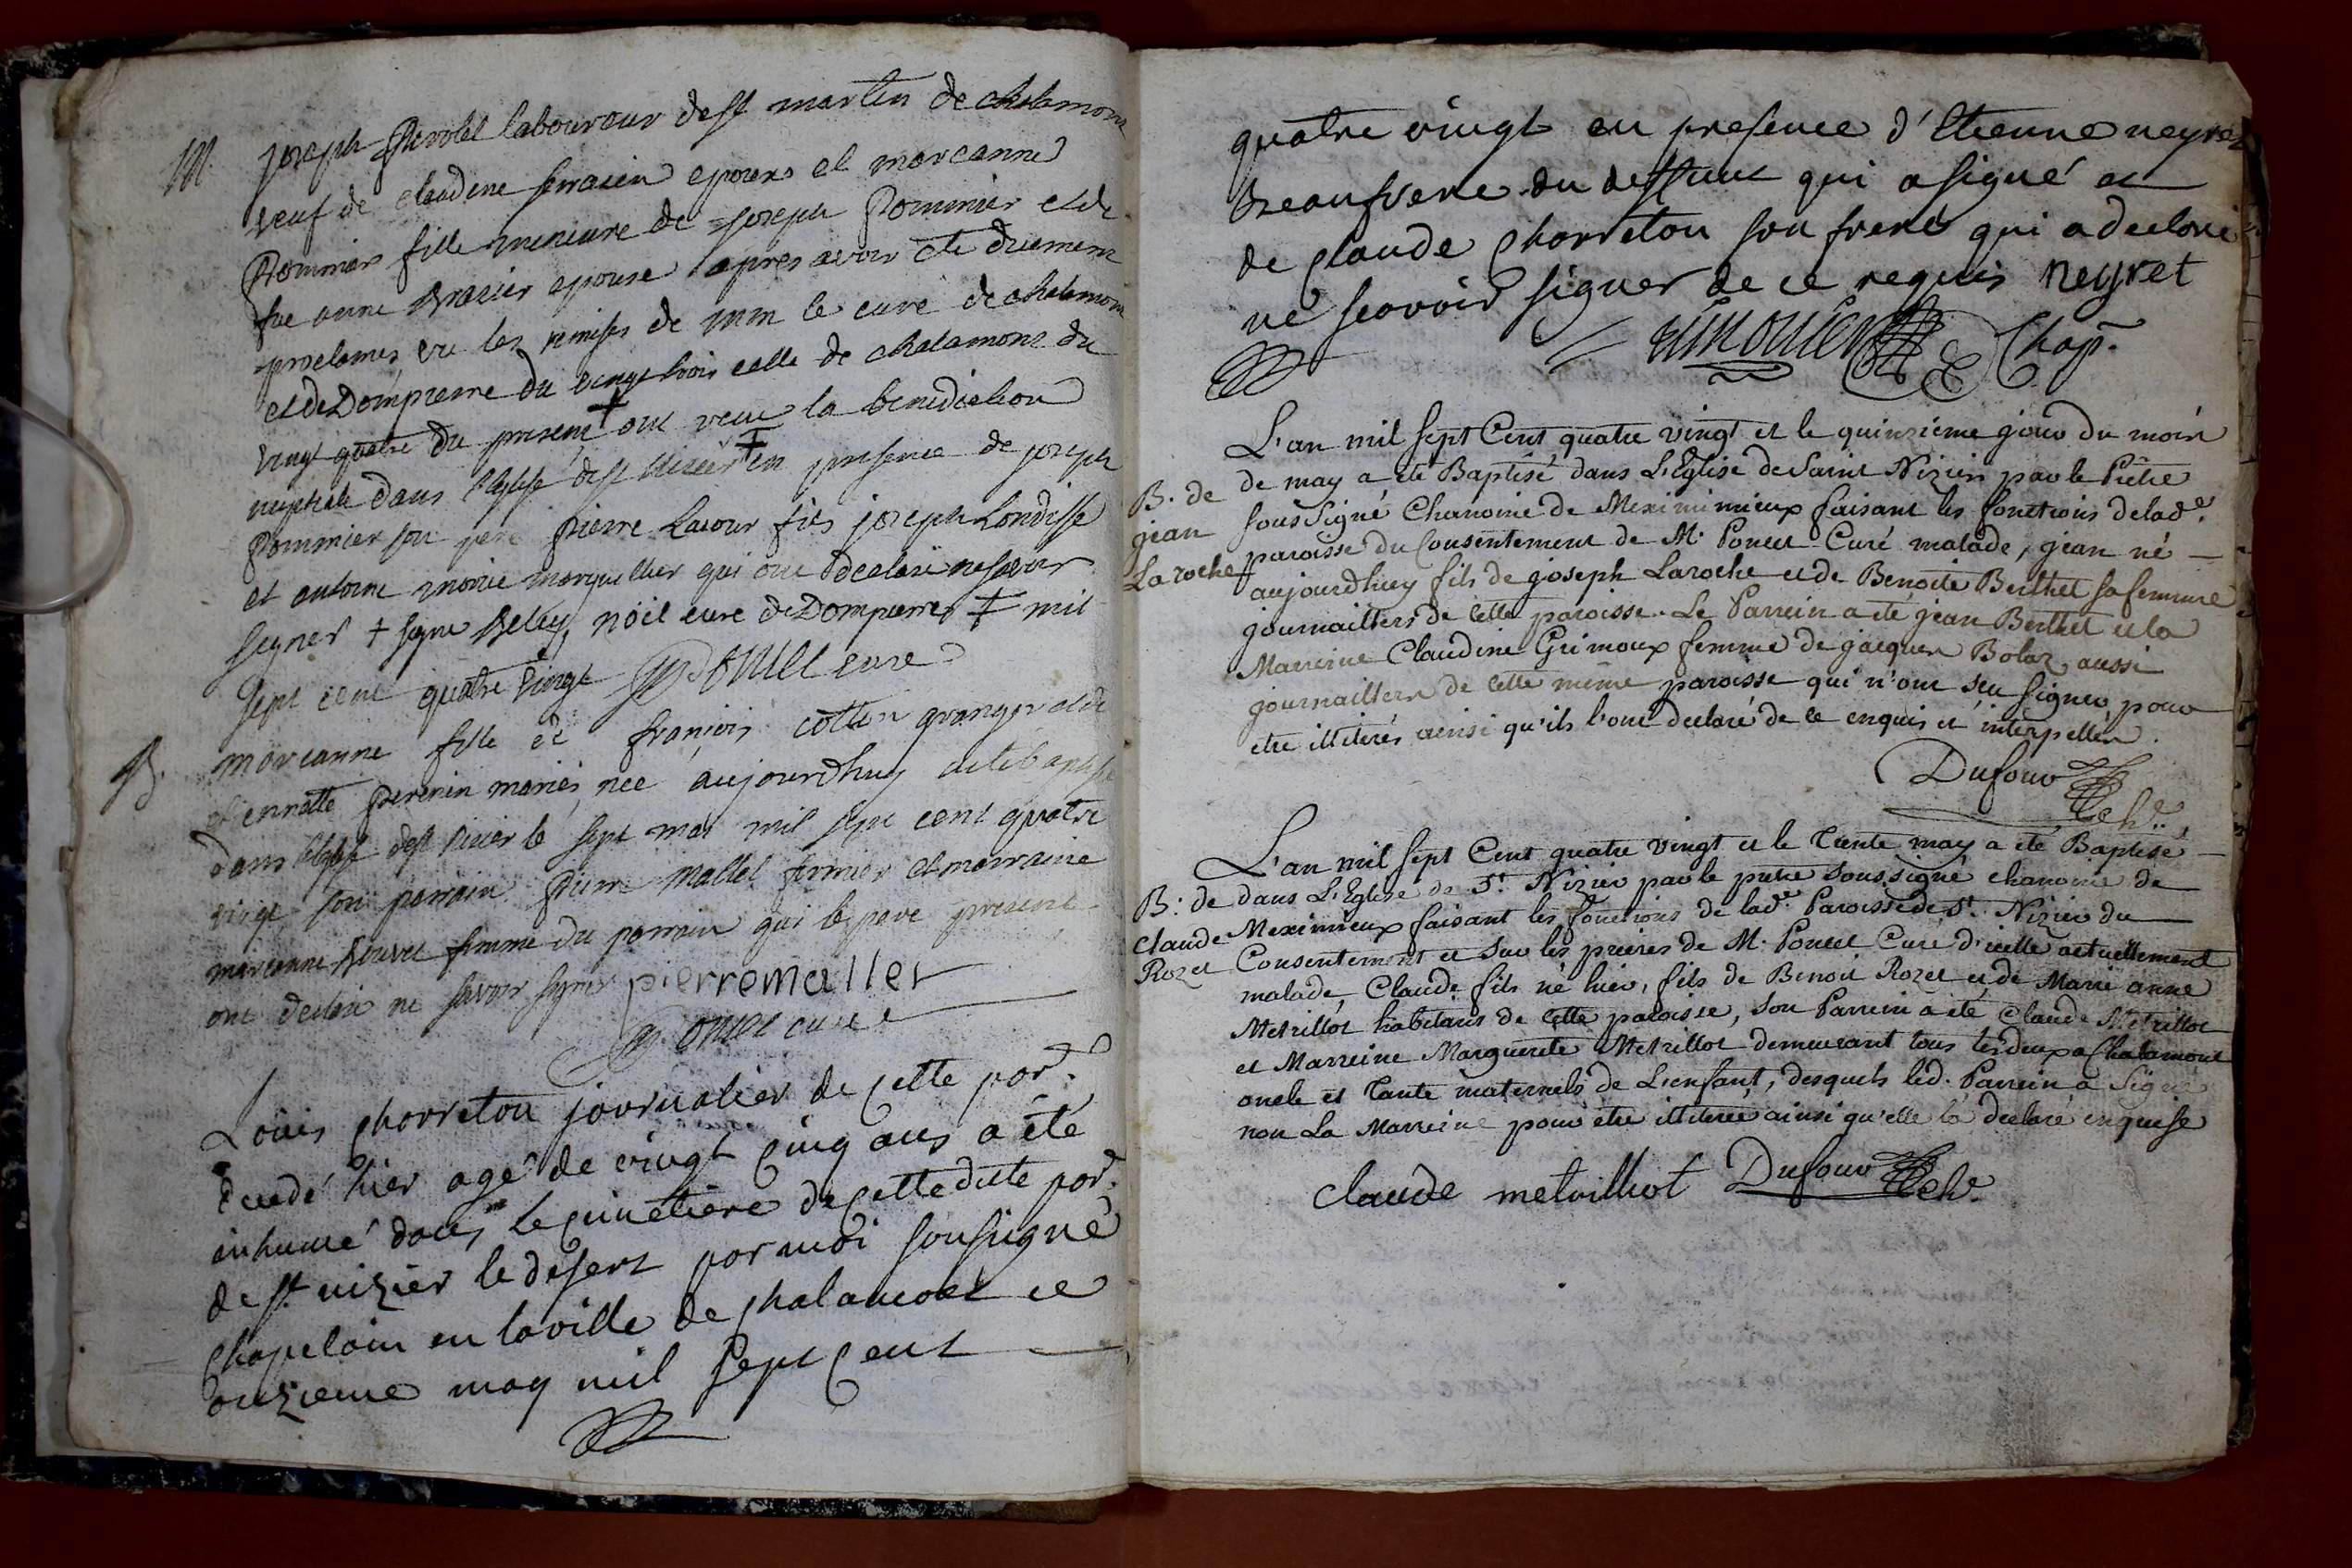 M. joseph laboureur de st martin de chalamont
veuf de claudine epoux et mareanne
Pommier fille mineure de joseph Pommier et de
fue anne Brasier epouse apres avoir ete duement
proclames, vu les remises de mm le curé de chalamont
et de Dompierre du vingt trois celle de chalamont du
vingt quatre du present + ont recu la benediction
nuptiale dans l'eglise de st nizier ‡ en presence de joseph
Pommier son pere pierre Lavour fils joseph
et antoine marguillier qui ont declaré ne savoir
signer + signé noël curé de Dompierre ‡ mil
sept cent quatre vingt Poncet curé
B. mareanne fille de françois cottin granger et de
etiennette perenin mariés, née aujourdhuy a eté baptisée
dans l'eglise de st nizier le sept mai mil sept cent quatre
vingt, son parrain pierre Mallet fermier et marraine
mareanne femme du parrain qui le pere present
ont declaré ne savoir signer pierre mallet
Poncet curé
Louis Chorreton journalier de cette par.
décedé hier agé de vingt cinq ans a été
inhumé dans le cimetiere de cette dite par.
de st. nizier le desert par moi soussigné
Chapelain en la ville de Chalamont ce
onzieme may mil sept cent
quatre vingt en presence d'Etienne neyret
Beaufrere du deffunt qui a signé et
de Claude Chorreton son frere qui a declaré
ne scavoir signer de ce requis neyret
Chap.
L'an mil sept Cent quatre vingt et le quinzieme jour du mois
B. de de may a été Baptisé dans L'Eglise de Saint Nizier par le Prêtre
jean sous Signé Chanoine de Meximimieux faisant les fonctions de lade.
Laroche paroisse du Consentement de M. Poncet Curé malade, jean né
aujourdhuy fils de joseph Laroche et de Benoite Berthet sa femme
journailliers de cette paroisse. Le Parrein a été jean Berthet et la
Marreine Claudine Grimoux femme de jacques Bolaz aussi
journailliers de cette même paroisse qui n'ont scu signer pour
etre illiterés ainsi qu'ils l'ont declaré de ce enquis et interpellés.
Dufour ch.
L'an mil sept Cent quatre vingt et le trente may a été Baptisé
B. de dans L'Eglise de St. Nizier par le prêtre sous signé chanoine de
Claude Meximieux faisant les fonctions de lade. Paroisse de St. Nizier du
Rozet Consentement et sur les prieres de M. Poncet Curé d'icelle actuellement
malade, Claude fils né hier, fils de Benoit Rozet et de Marie anne
Metrillot habitans de cette paroisse, son Parrein a été Claude Metrillot
et Marreine Marguerite Metrillot demeurant tous les deux a Chalamont
oncle et tante maternels de L'enfant, desquels led. Parrein a Signé
non La Marreine pour etre illiterée ainsi qu'elle l'a declaré enquise
claude metrilliot Dufour ch.